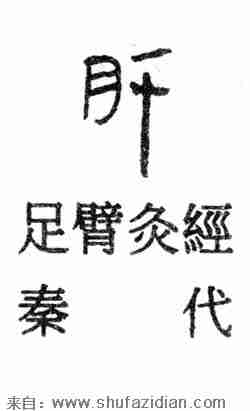 肝
足臂灸經
秦代
来自：www.shufazidian.com